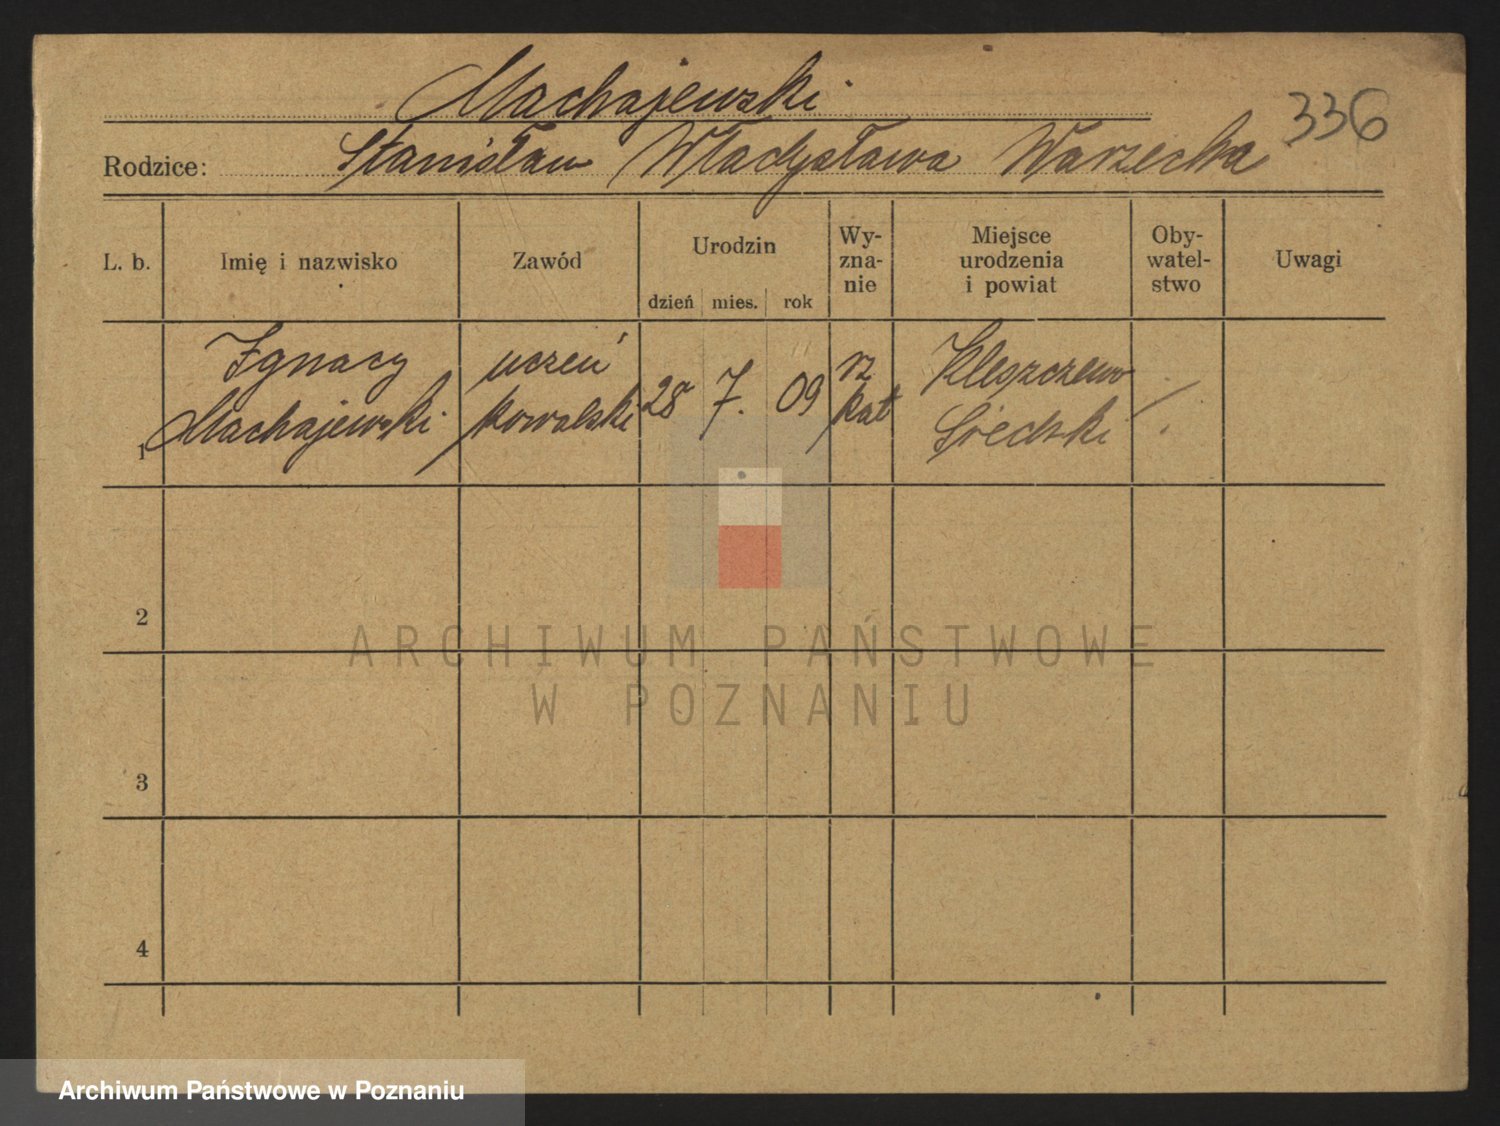 Machajewski
336
Rodzice: Stanisław Władysława Warzecha
L. b.
Imię i nazwisko
Zawód
Urodzin
dzień mies. rok
Wy-
zna-
nie
Miejsce
urodzenia
i powiat
Oby-
watel-
stwo
Uwagi
1
Ignacy
Machajewski
uczeń
kowalski
28 7. 09
rz
kat
Kleszczewo
Średzki
2
3
4
ARCHIWUM PAŃSTWOWE
W POZNANIU
Archiwum Państwowe w Poznaniu